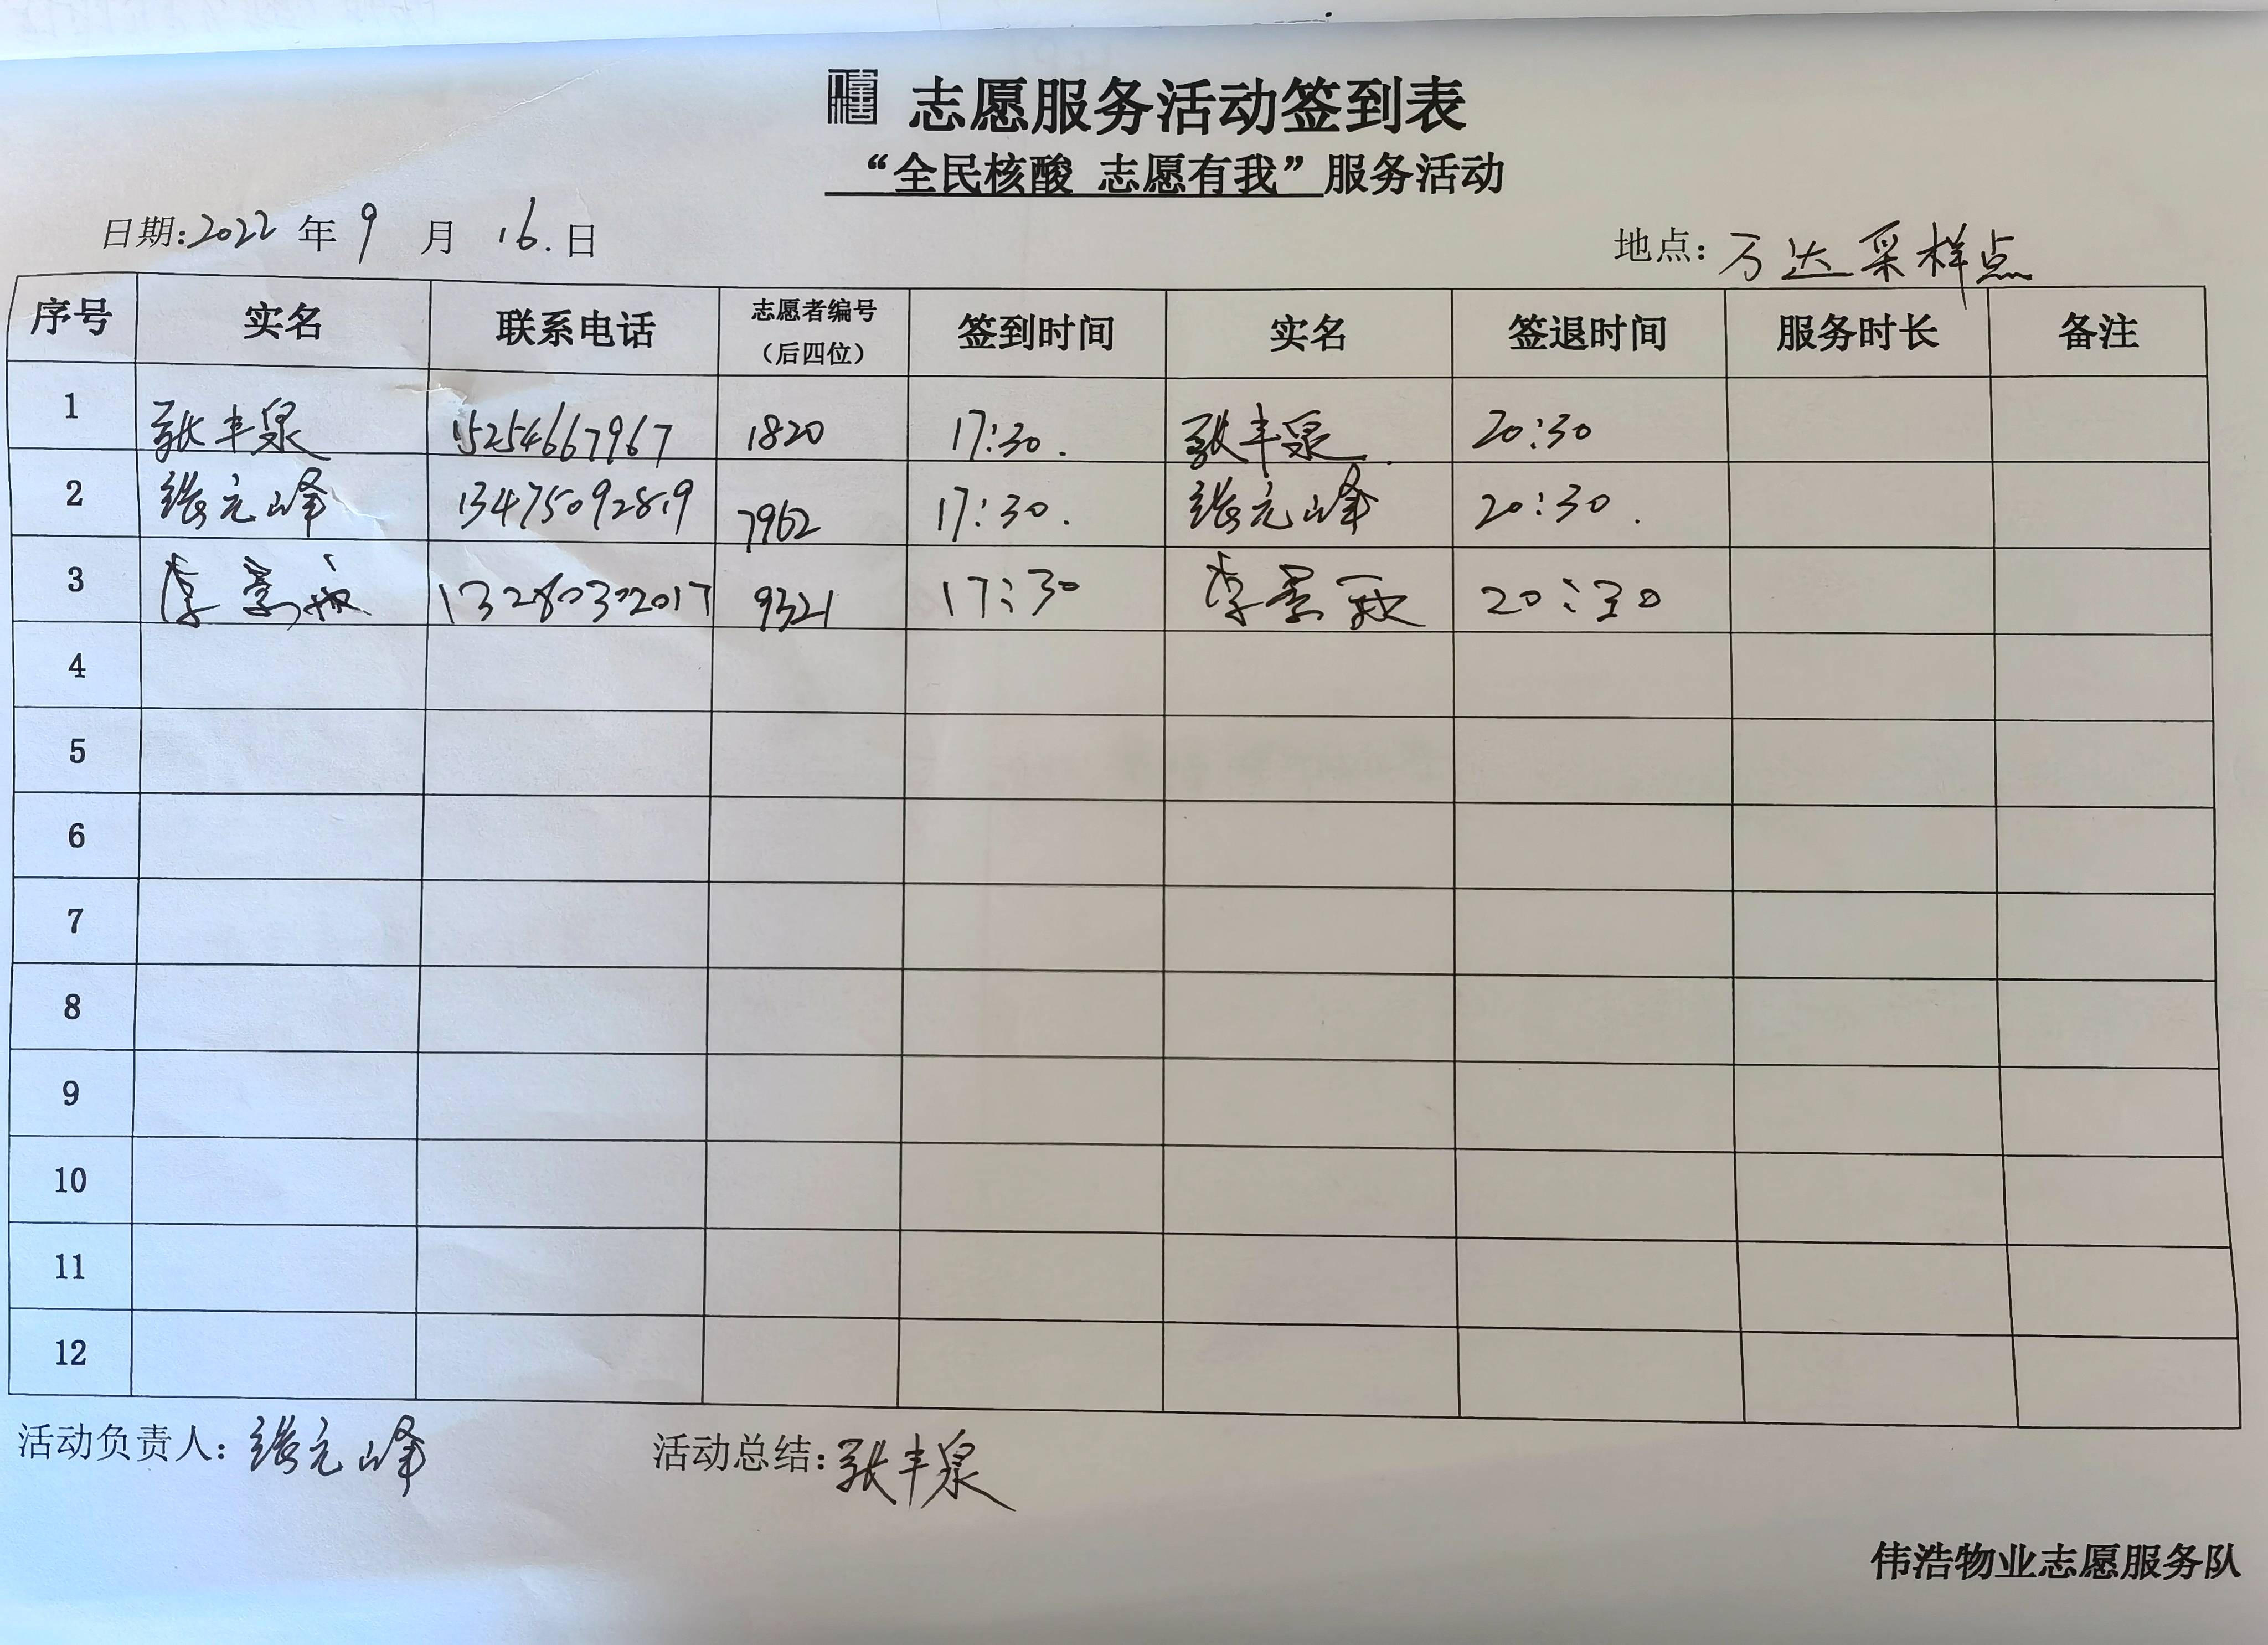 志愿服务活动签到表
“全民核酸 志愿有我”服务活动
日期:2022 年 9 月 16.日 地点:万达采样点
序号 实名 联系电话 志愿者编号（后四位） 签到时间 实名 签退时间 服务时长 备注
1 张丰泉 15254667967 1820 17:30. 张丰泉 20:30
2 张元峰 13475092819 7962 17:30. 张元峰 20:30.
3 李景 13280302017 9321 17:30 李景 20:30
4
5
6
7
8
9
10
11
12
活动负责人:张元峰 活动总结:张丰泉
伟浩物业志愿服务队